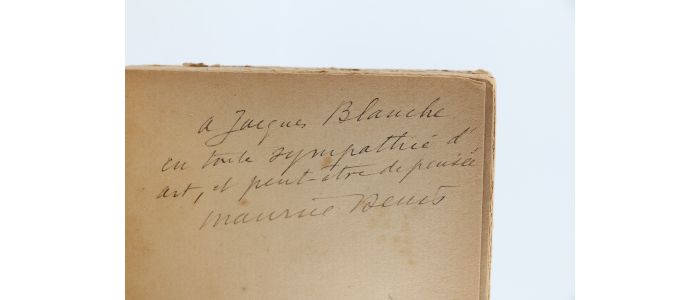 a Jacques Blanche
en toute sympathie d'
art, et peut-être de pensée
Maurice Denis